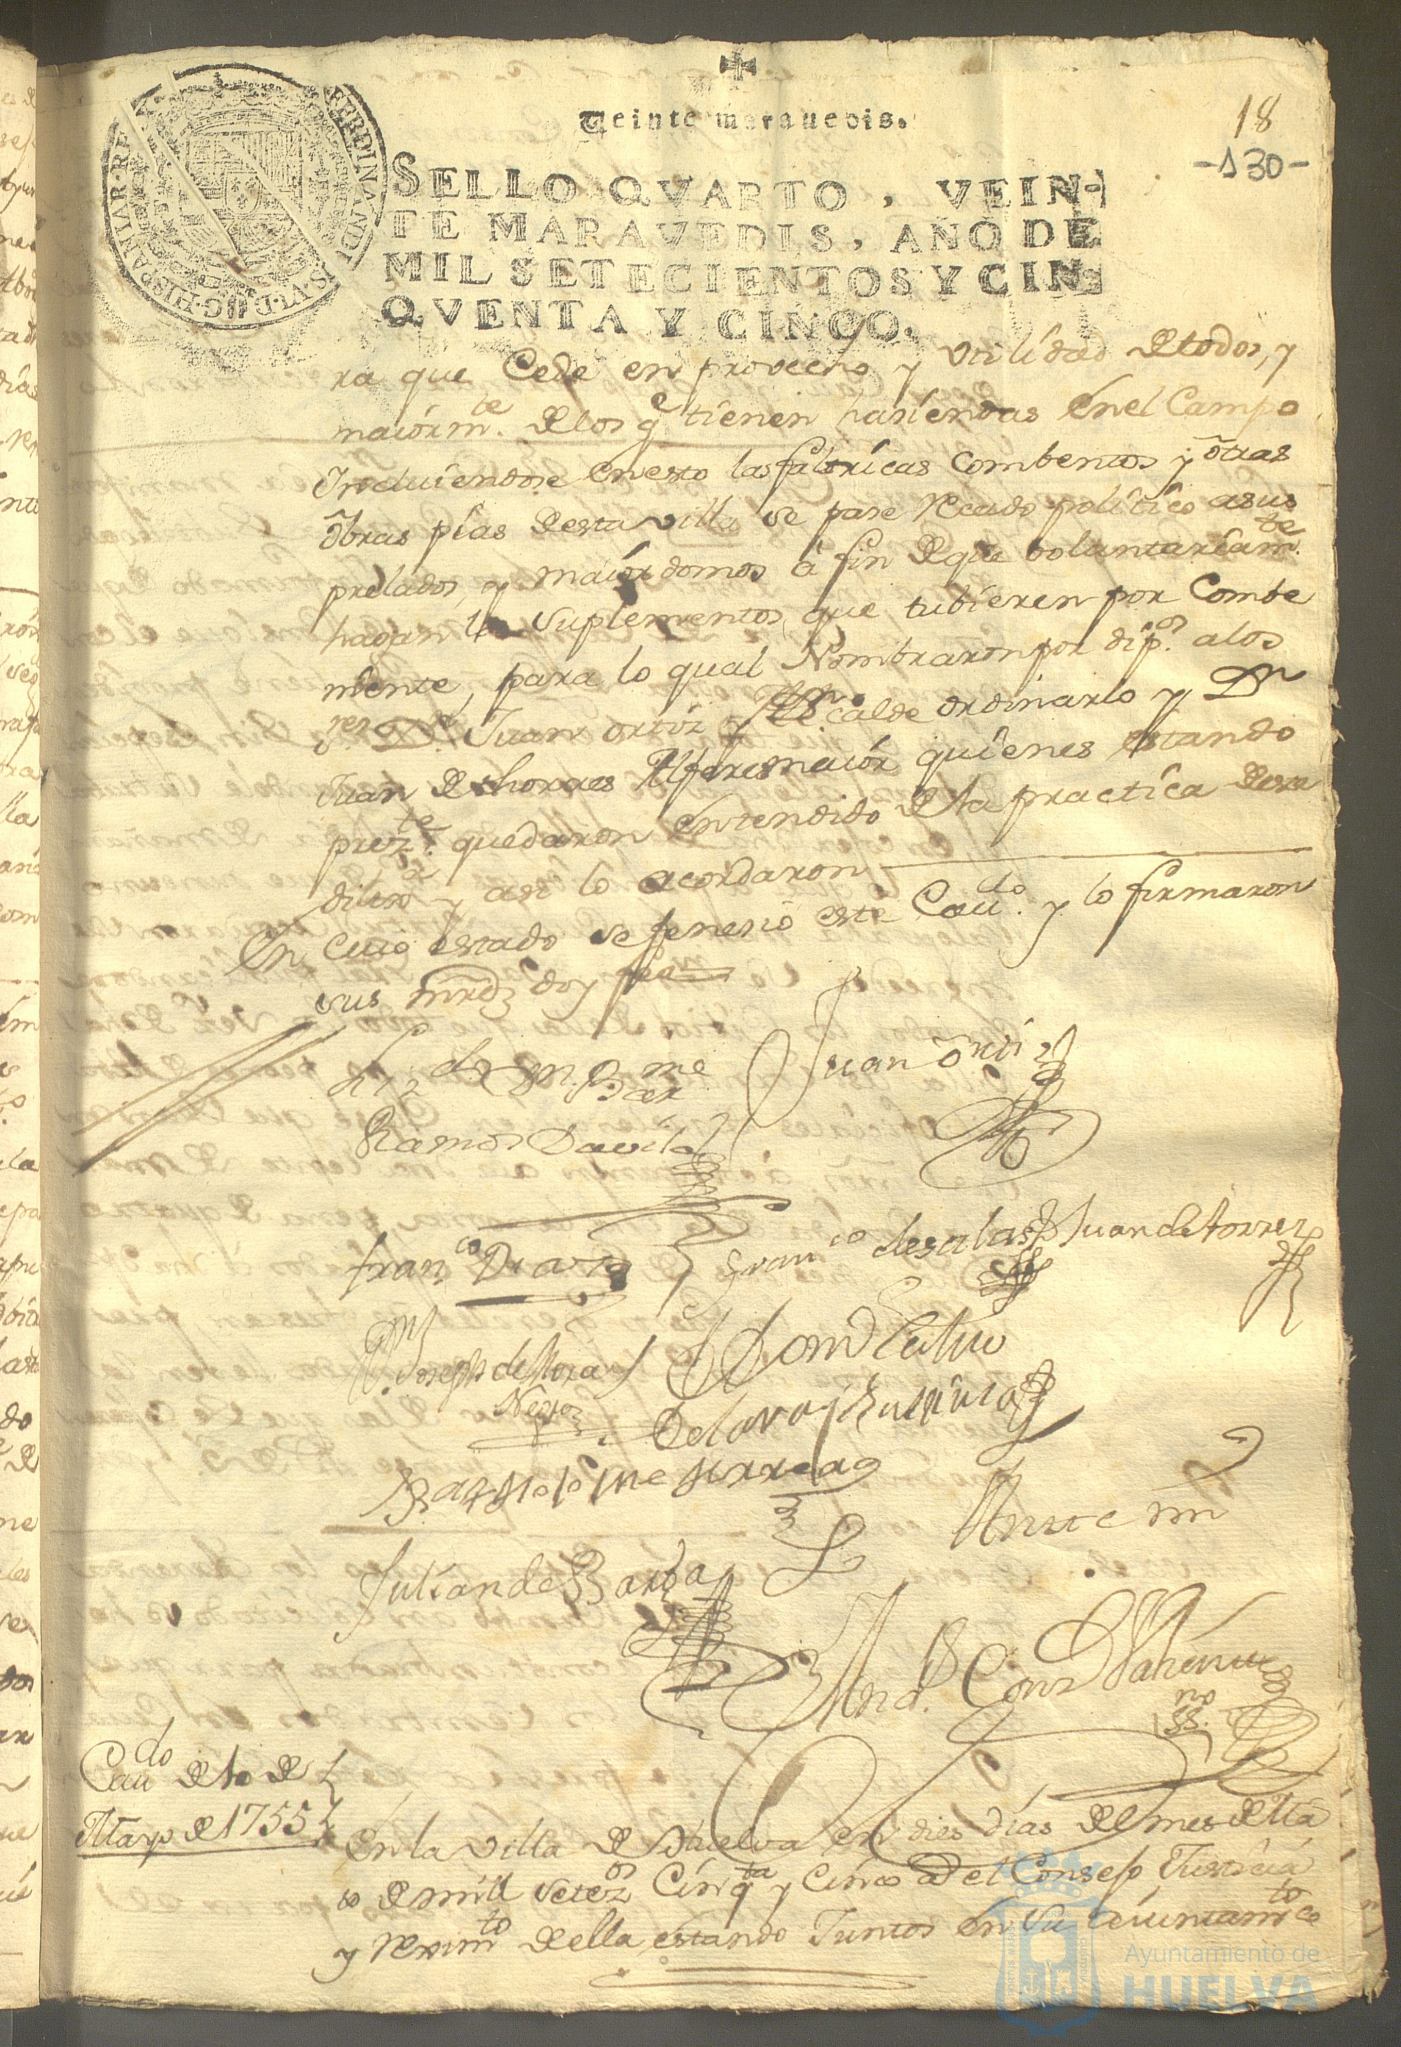 18
-130-
Veinte maravedis.
FERDINANDUS·VI·D·G·HISPANIAR·REX
SELLO QVARTO, VEIN-
TE MARAVEDIS, AÑO DE
MIL SETECIENTOS Y CIN-
QVENTA Y CINCO.
ra que Cede en provecho y utilidad de todos, y
maiormte. de los qe tienen hasiendas en el Campo
Incluiendose en esto las fabricas Combentos y otras
Obras pias de esta villa se pase recado politico a sus
prelados, y maiordomos à fin de que voluntariamte.
hagan los suplementos que tubieren por Combe
niente, para lo qual Nombraron por dipos. a los
res. Dn. Juan Ortiz Alcalde ordinario y Dn
Juan de thorres Alferes maior quienes estando
preztes. quedaron entendido de la practica de esta
dilixa y asi lo acordaron
En cuio estado se fenesió este Cavdo. y lo firmaron
sus mrdz doy fee
Lizdo Dn. Barme
Ramos Davila
Juan Ortiz
Franco Diaz
Franco de salas
Juan de torres
Dn Joseph de Mora
Negron
Bartolome
Ante mi
Julian de Barba
no
SS.
Cavdo de 10 de
Mayo de 1755
En la villa de Huelva en dies dias del mes de Ma
io de mill setezos Cinqta y Cinco a el Consejo Justicia
y reximto de ella estando Juntos en su aiuntamto
Ayuntamiento de
HUELVA